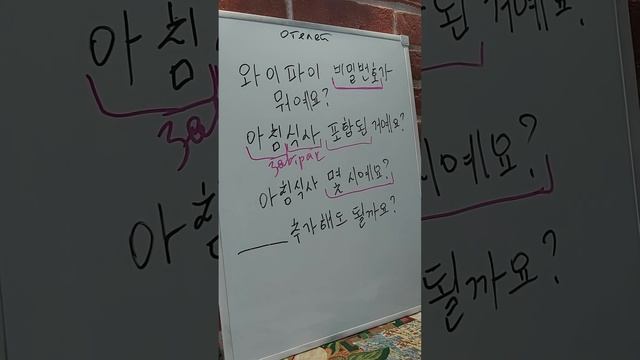 отелът
와이파이 비밀번호가
뭐예요?
아침식사 포함된 거예요?
아침식사 몇 시예요?
____추가해도 될까요?